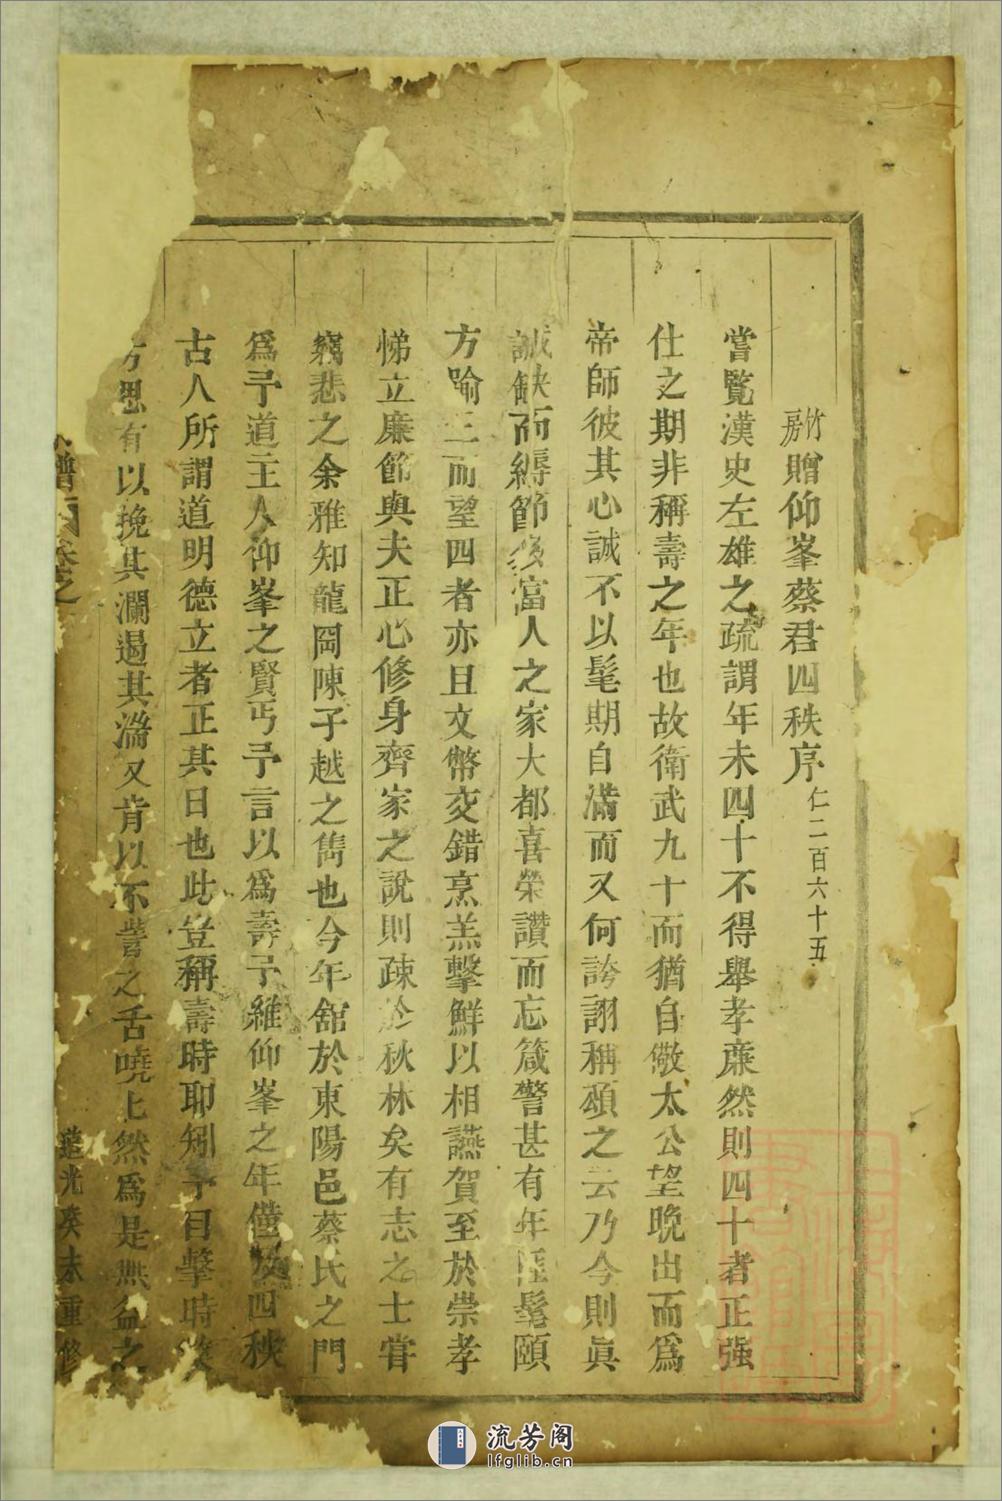 竹房贈仰峯蔡君四秩序仁二百六十五
嘗覽漢史左雄之疏謂年未四十不得舉孝亷然則四十者正强
仕之期非稱壽之年也故衛武九十而猶自儆太公望晚出而爲
帝師彼其心誠不以髦期自滿而又何誇詡稱頌之云乃今則眞
誠缺而縟節後富人之家大都喜榮讚而忘箴警甚有年髦頤
方踰三而望四者亦且文幣交錯烹羔擊鮮以相讌賀至於崇孝
悌立廉節與夫正心修身齊家之說則疎於秋林矣有志之士甞
竊悲之余雅知龍岡陳子越之雋也今年舘於東陽邑蔡氏之門
爲予道主人仰峯之賢丐予言以爲壽予維仰峯之年僅及四秩
古人所謂道明德立者正其日也此豈稱壽時耶矧予目擊時
方思有以挽其瀾遏其瀹又肯以不訾之舌嘵上然爲是無益之
譜 卷之 道光癸未重修
流芳阁
lfglib.cn